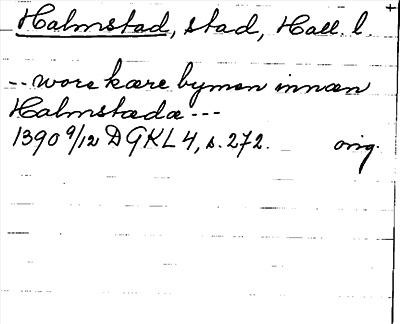 Halmstad, stad, Hall. l.
-- wore kære bymen innæn
Halmstæda ---
1390 9/12 DGKL 4, s. 272. orig.